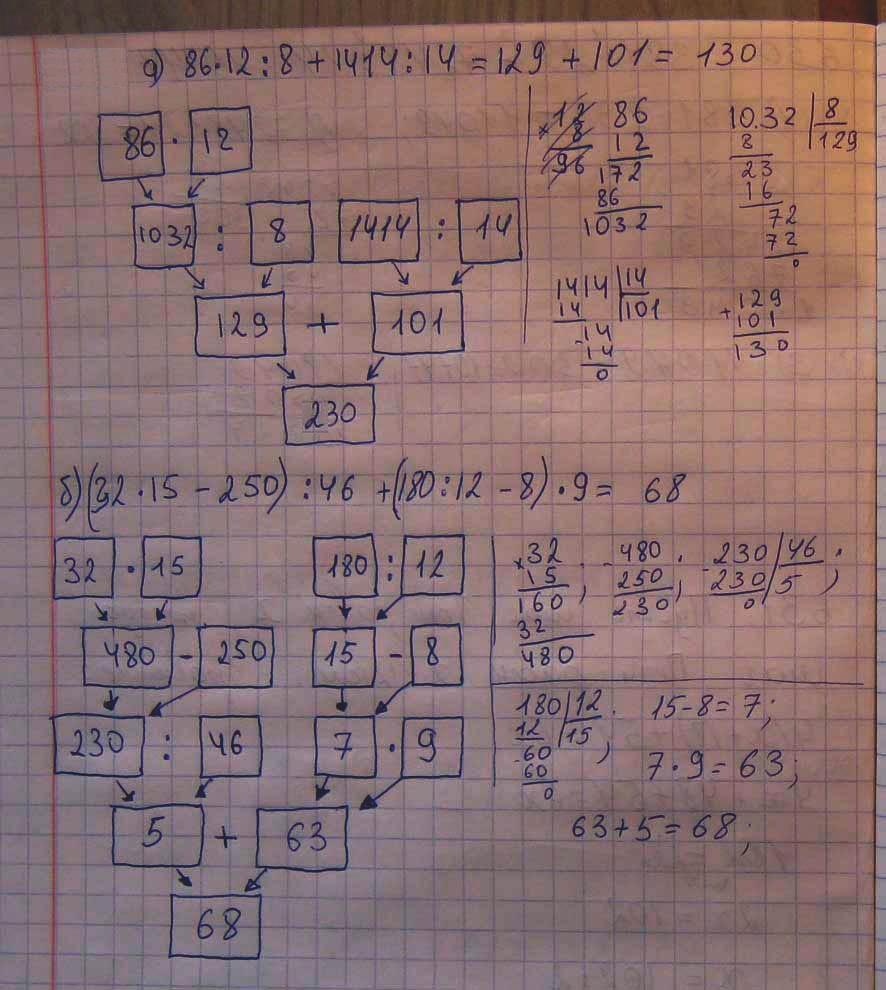 а) 86·12:8+1414:14=129+101= 130
86 · 12
1032 : 8 1414 : 14
129 + 101
230
12 86 10.32 8
× 8 12 8 129
96 172 23
86 16
1032 72
72
0
1414 14 129
14 101 +101
-14 130
14
0
б)(32·15-250):46+(180:12-8)·9= 68
32 · 15 180 : 12
480 - 250 15 - 8
230 : 46 7 · 9
5 + 63
68
×32 ; -480 ; -230 46 ;
15 250 -230 5
160 230 0
32
480
180 12 ; 15-8=7;
12 15
-60 7·9=63;
60
0
63+5=68;